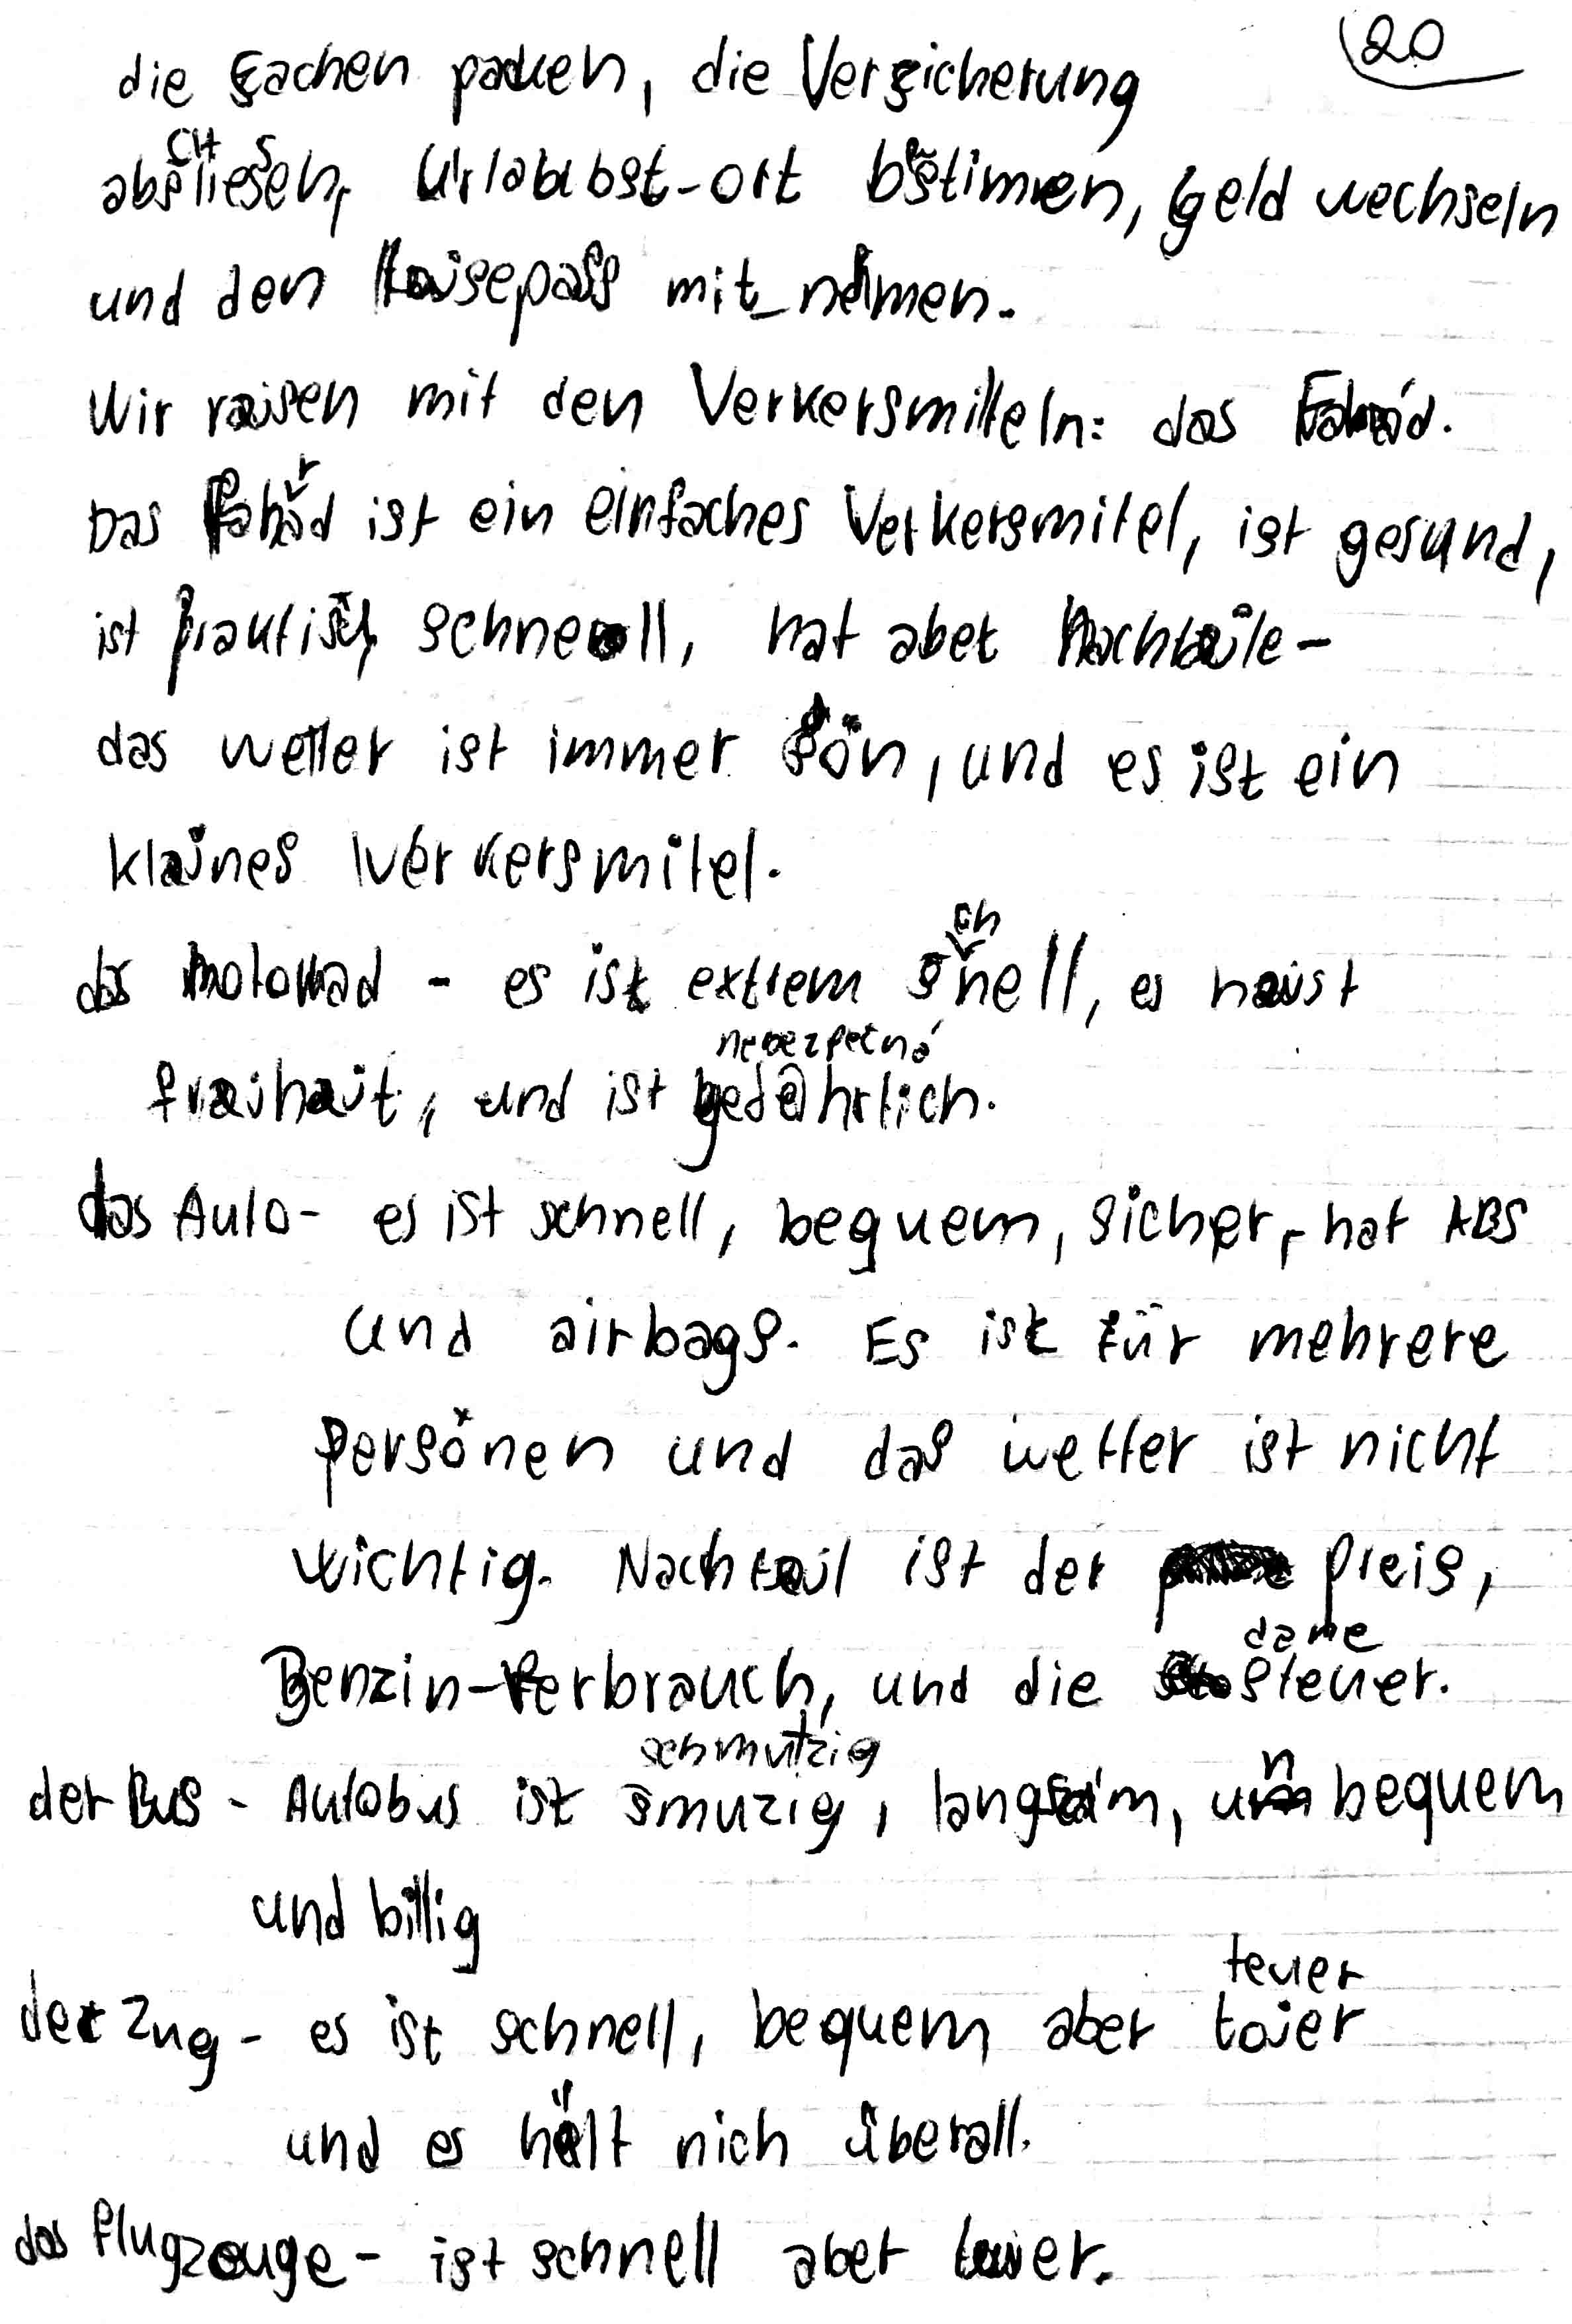 20
die Sachen packen, die Versicherung
CH S
absliesen, Urlaubst-ort bestimen, Geld wechseln
und den Raisepass mit_nehmen.
Wir raisen mit den Verkersmitteln: das Fahrád.
r
Das Fahrád ist ein einfaches Verkersmitel, ist gesund,
ist praktisch schnell, hat aber Nachtaile -
das wetter ist immer sön, und es ist ein
klaines Verkersmitel.
ch
das Motorrad - es ist extrem snell, es haist
nebezpečné
fraihait, und ist gefährlich.
das Auto - es ist schnell, bequem, sicher, hat ABS
und airbags. Es ist für mehrere
persönen und das wetter ist nicht
wichtig. Nachtail ist der preis,
dane
Benzin-Verbrauch, und die Steuer.
schmutzig
der Bus - Autobus ist smuzig, langsam, unbequem
und billig
teuer
der Zug - es ist schnell, bequem aber toier
und es hält nich überall.
das Flugzeuge - ist schnell aber